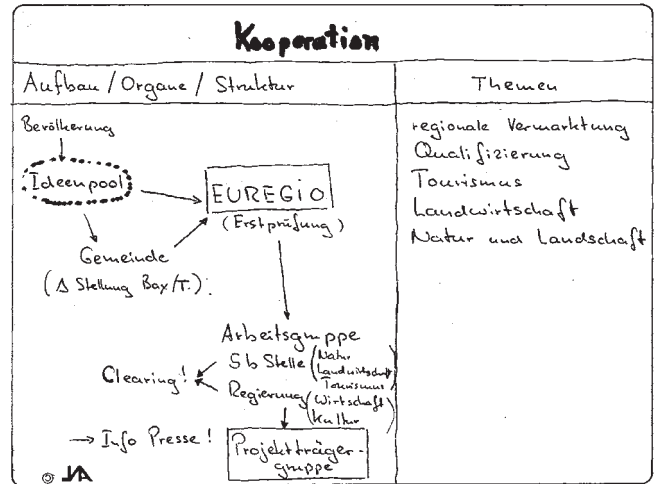 Kooperation
Aufbau / Organe / Struktur
Themen
Bevölkerung
Ideenpool
EUREGIO
(Erstprüfung)
Gemeinde
(Δ Stellung Bay/T.)
Arbeitsgruppe
Sb Stelle (Natur
Landwirtschaft
Tourismus)
Clearing!
Regierung (Wirtschaft
Kultur)
→ Info Presse!
Projektträger-
gruppe
regionale Vermarktung
Qualifizierung
Tourismus
Landwirtschaft
Natur und Landschaft